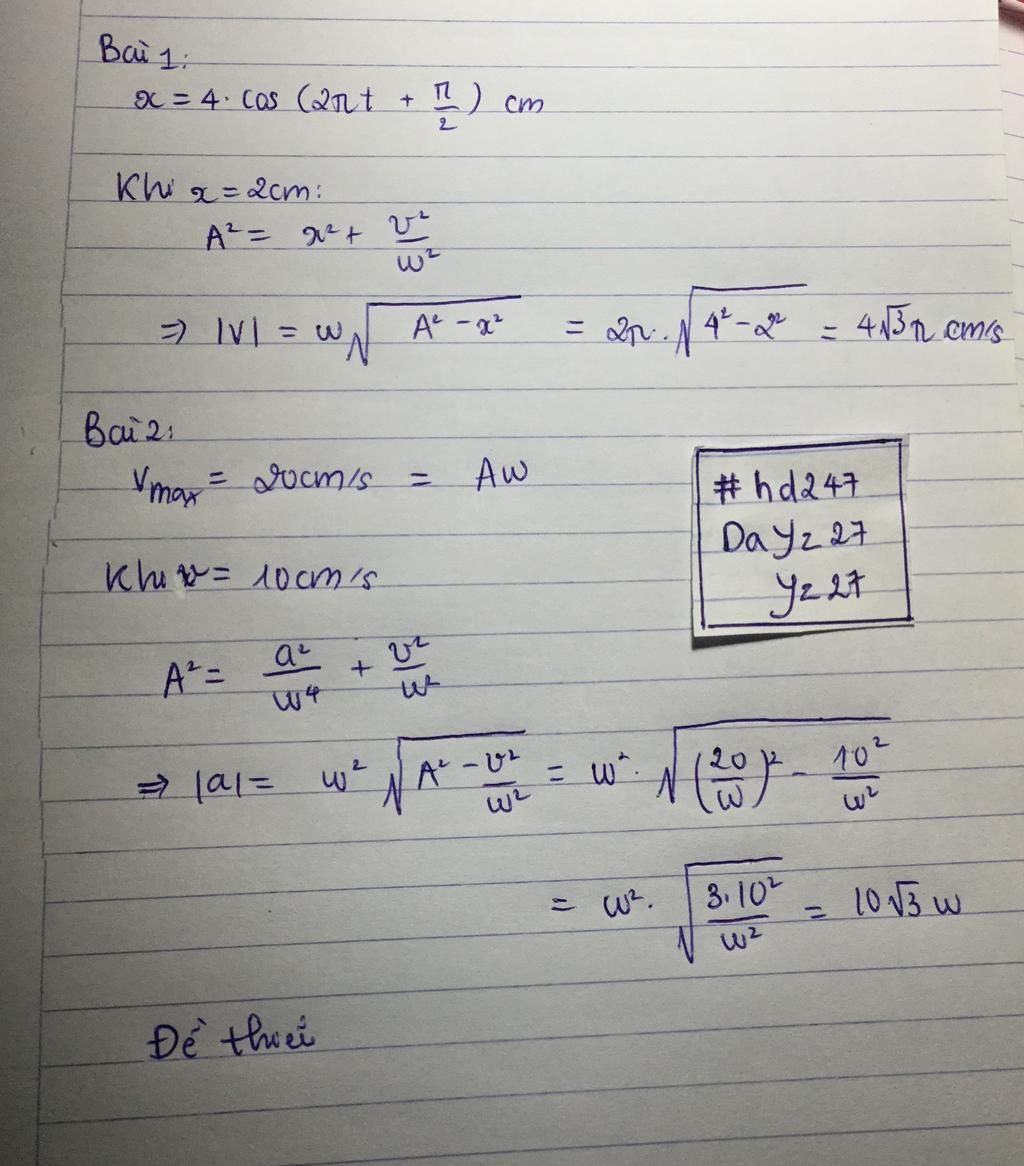 Bài 1:
x = 4. cos (2πt + π/2) cm
Khi x = 2cm:
A² = x² + v²/w²
⇒ |V| = w√(A² - x²) = 2π. √(4² - 2²) = 4√3π cm/s
Bài 2:
Vmax = 20cm/s = Aw
#hd247
Da yz 27
yz 27
Khi v = 10cm/s
A² = a²/w⁴ + v²/w²
⇒ |a| = w² √(A² - v²/w²) = w². √((20/w)² - 10²/w²)
= w². √(3.10²/w²) = 10√3 w
Đề thiếu